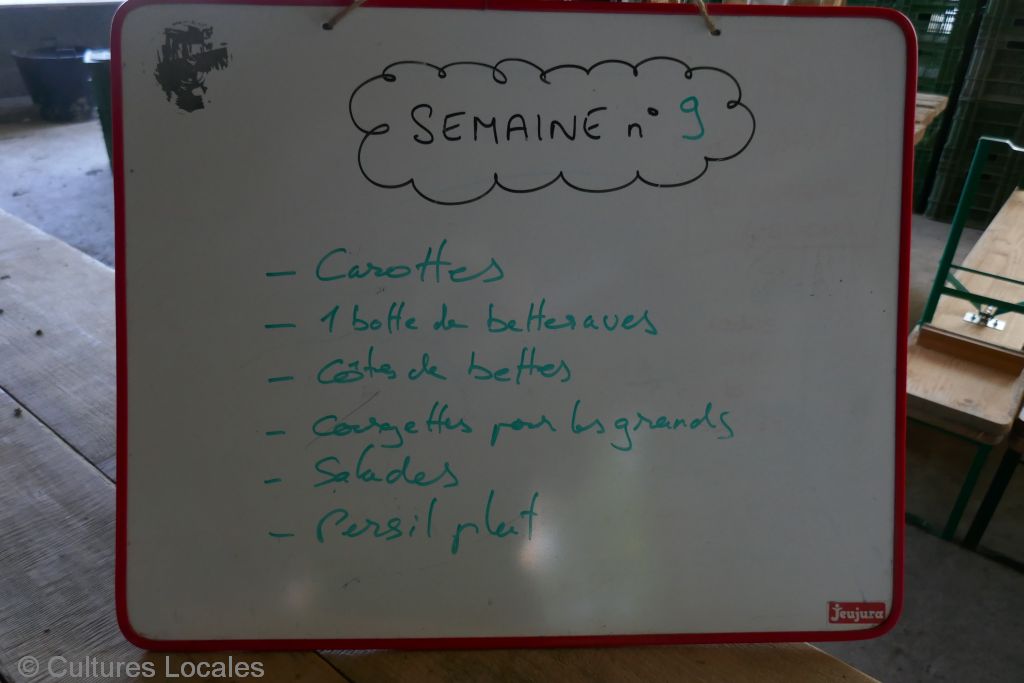 SEMAINE n° 9
- Carottes
- 1 botte de betteraves
- Côtes de bettes
- Courgettes pour les grands
- Salades
- Persil plat
Jeujura
© Cultures Locales